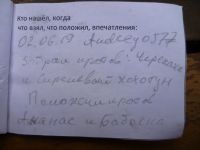 Кто нашёл, когда
что взял, что положил, впечатления:
02.06.19 Andrey0577
Забрал призов: Черепаха
и сиреневый хохотун
Положил призов
Ананас и Бабочка